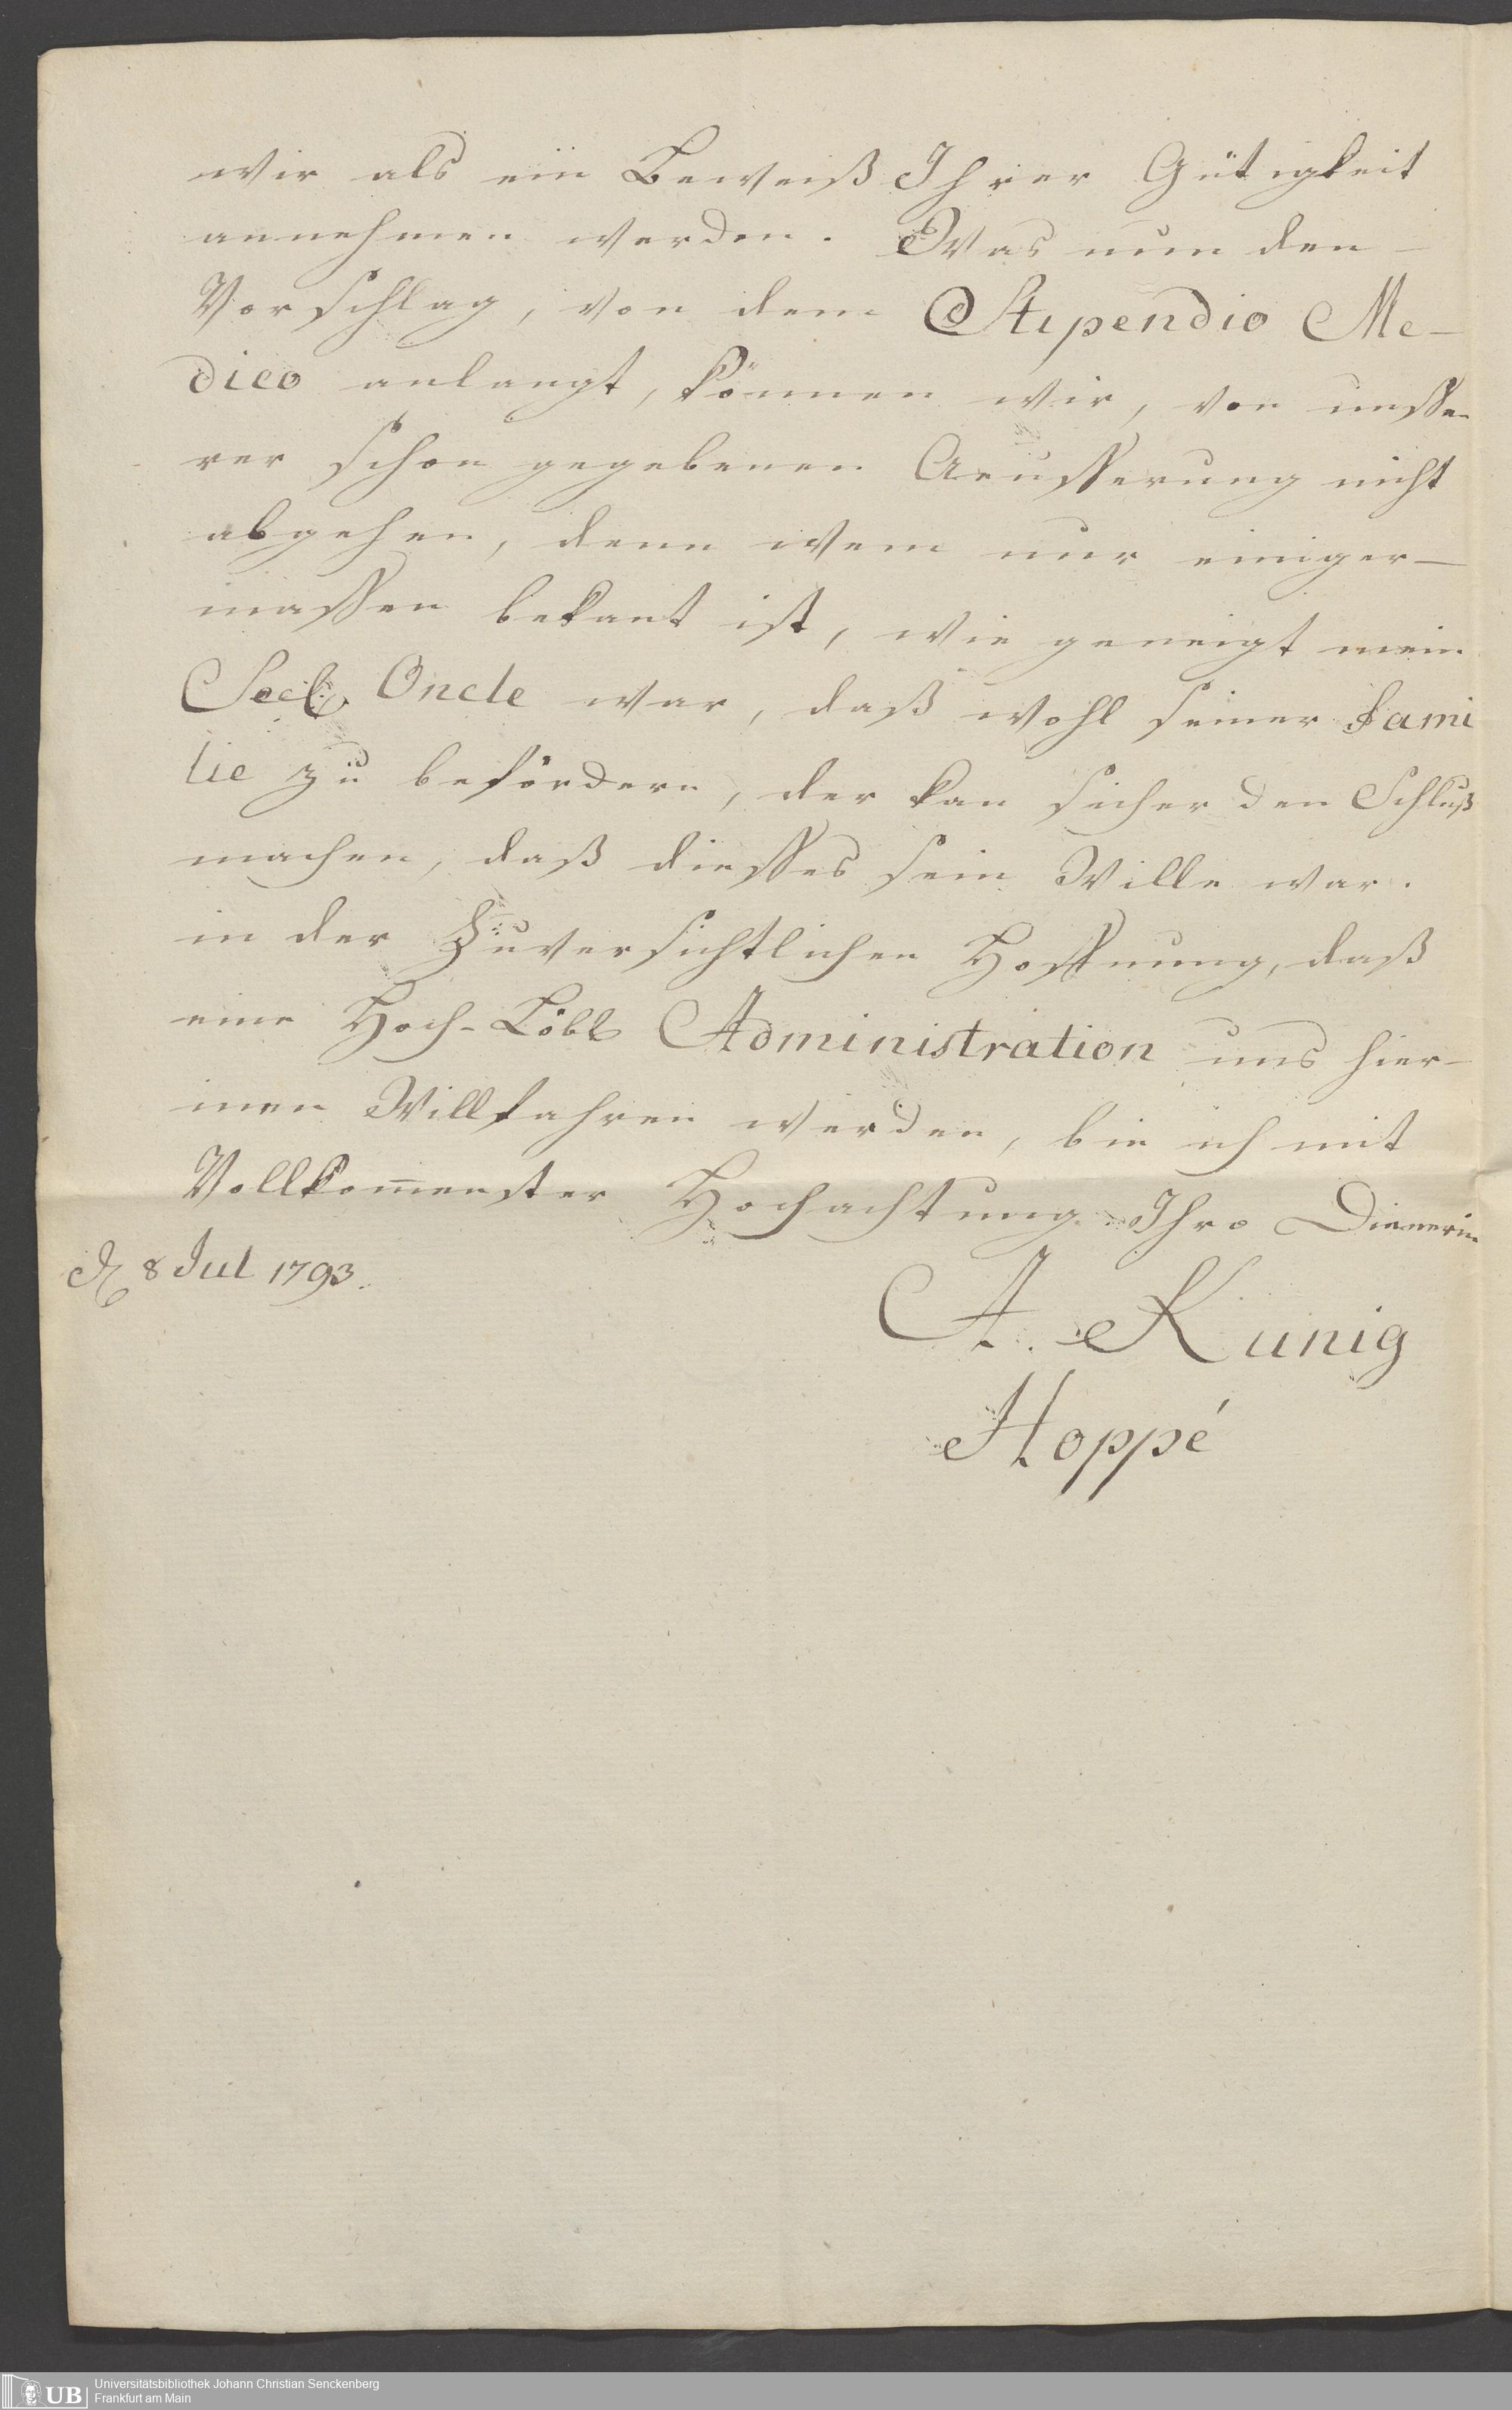 wir als ein Beweiß Ihrer Gütigkeit
annehmen werden. Was nun den
Vorschlag, von dem Stipendio Me-
dico anlangt, können wir, von unsse-
rer schon gegebenen Aeusserung nicht
abgehen, denn wem nur einiger-
massen bekant ist, wie geneigt mein
Seel. Oncle war, daß wohl seiner Fami
lie zu befördern, der kan sicher den Schluß
machen, daß diesses sein Wille war.
in der Zuversichtlichen Hoffnung, daß
eine Hoch-Löbl Administration uns hier-
innen Willfahren werden, bin ich mit
Vollkom̅enster Hochachtung Ihro Dienerin
d 8 Jul 1793.
A. Kunig
Hoppé
UB
Universitätsbibliothek Johann Christian Senckenberg
Frankfurt am Main